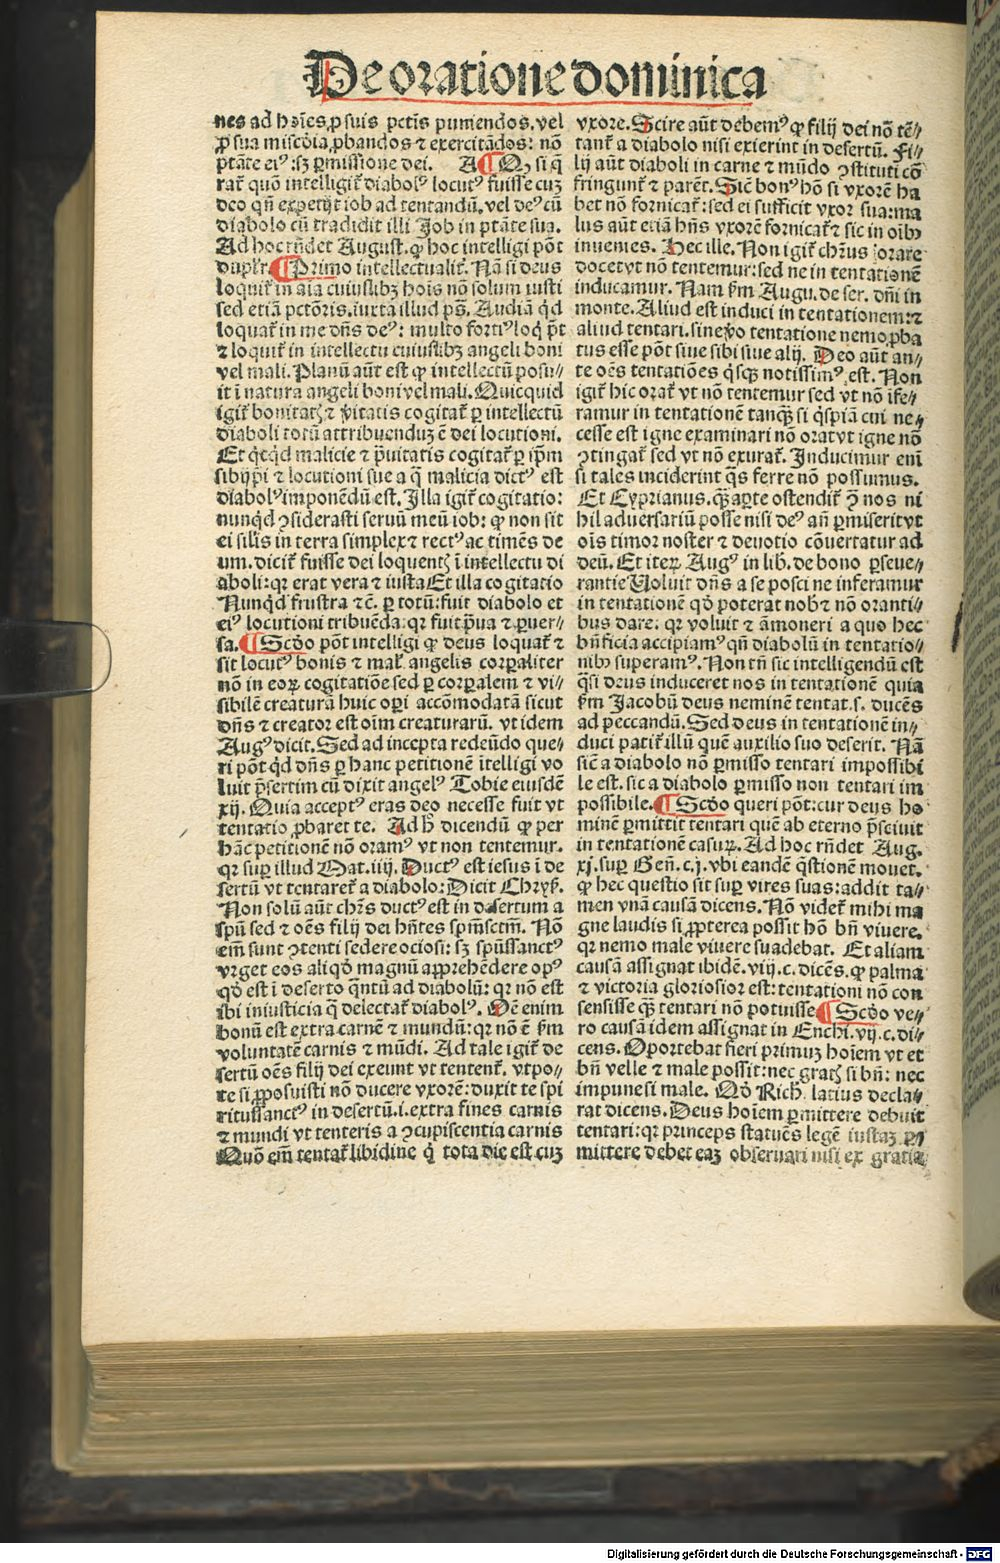 De oratione dominica
nes ad hoīes, ꝓ suis pctīs puniendos, vel
ꝓ sua miscd̄ia, ꝓbandos ⁊ exercitādos: nō
ptāte eiꝰ :sꝫ ꝑmissione dei. A ¶ Qꝫ si q̄
rat᷑ quō intelligit᷑ diabolꝰ locutꝰ fuisse cuꝫ
deo qn̄ expetijt iob ad tentandū, vel deꝰ cū
diabolo cū tradidit illi Job in ptāte sua.
Ad hoc rn̄det August. ꝙ hoc intelligi pōt
duplr̄. ¶ Primo intellectualit᷑. Nā si deus
loquit᷑ in aīa cuiuslibꝫ hoīs nō solum iusti
sed etiā pctōris. iuxta illud pꝰ. Audiā qͥd
loquat᷑ in me dn̄s deꝰ: multo fortiꝰ loqͥ pōt
⁊ loquit᷑ in intellectu cuiuslibꝫ angeli boni
vel mali. Planū aūt est ꝙ intellectū posu⸗
it ī natura angeli boni vel mali. Quicquid
igit᷑ bonitatꝭ ⁊ v̄itatis cogitat᷑ ꝑ intellectū
diaboli totū attribuenduꝫ ē dei locutioni.
Et qͥcqͥd malicie ⁊ p̄uitatis ⁊ cogitat᷑ ꝑ ip̄m
sibijp̄i ⁊ locutioni sue a qͣ malicia dictꝰ est
diabolꝰ imponēdū est. Illa igit᷑ cogitatio:
nunqͥd ꝯsiderasti seruū meū iob: ꝙ non sit
ei silīs in terra simplex ⁊ rectꝰ ac timēs de
um. dicit᷑ fuisse dei loquentꝭ ī intellectu di
aboli: qꝛ erat vera ⁊ iusta Et illa cogitatio
Nunqͥd frustra ⁊c̄. ꝑ totū: fuit diabolo et
eiꝰ locutioni tribuēda: qꝛ fuit p̄ua ⁊ ꝑuer⸗
sa. ¶ Scd̄o pōt intelligi ꝙ deus loquat᷑ ⁊
sit locutꝰ bonis ⁊ mal᷑ angelis corꝑaliter
nō in eoꝝ cogitatiōe sed ꝑ corꝑalem ⁊ vi⸗
sibilē creaturā huic oꝑi accōmodatā sicut
dn̄s ⁊ creator est oīm creaturarū. vt idem
Augꝰ dicit. Sed ad incepta redeūdo que⸗
ri pōt qͥd dn̄s ꝑ hanc petitionē ītelligi vo
luit p̄sertim cū dixit angelꝰ Tobie eiusdē
xij. Quia acceptꝰ eras deo necesse fuit vt
tentatio ꝓbaret te. Ad h̄ dicendū ꝙ per
hāc petitionē nō oramꝰ vt non tentemur.
qꝛ suꝑ illud Mat. iiij. Ductꝰ est iesus ī de
sertū vt tentaret᷑ a diabolo: Dicit Chrys̄.
Non solū aūt chr̄s ductꝰ est in desertum a
spū sed ⁊ oēs filij dei hn̄tes spm̄sctm̄. Nō
em̄ sunt ꝯtenti sedere ociosi: sꝫ spūssanctꝰ
vrget eos aliqd̄ magnū apprehēdere opꝰ
qd̄ est ī deserto qͣntū ad diabolū: qꝛ nō est
ibi iniusticia qͣ delectat᷑ diabolꝰ. Oē enim
bonū est extra carnē ⁊ mundū: qꝛ nō ē s̄m
voluntatē carnis ⁊ mūdi. Ad tale igit᷑ de
sertū oēs filij dei exeunt vt tentent᷑. vtpo⸗
te si ꝓposuisti nō ducere vxorē: duxit te spi
ritussanctꝰ in desertū. i. extra fines carnis
⁊ mundi vt tenteris a ꝯcupiscentia carnis
Quō em̄ tentat᷑ libidine qͥ tota die est cuꝫ
vxore. Scire aūt debemꝰ ꝙ filij dei nō tē⸗
tant᷑ a diabolo nisi exierint in desertū. Fi⸗
lij aūt diaboli in carne ⁊ mūdo ꝯstituti cō
fringunt᷑ ⁊ parēt. Sic̄ bonꝰ hō si vxorē ha
bet nō fornicat᷑: sed ei sufficit vxor sua: ma
lus aūt etiā hn̄s vxorē fornicat᷑ ⁊ sic in oībꝰ
inuenies. Hec ille. Non igit᷑ chr̄us orare
docet vt nō tentemur: sed ne in tentationē
inducamur. Nam s̄m Augu. de ser. dn̄i in
monte. Aliud est induci in tentationem: ⁊
aliud tentari. sine v̄o tentatione nemo ꝓba
tus esse pōt siue sibi siue alij. Deo aūt an⸗
te oēs tentatiōes qͥsqꝫ notissimꝰ est. Non
igit᷑ hic orat᷑ vt nō tentemur sed vt nō īfe⸗
ramur in tentationē tanqꝫ si qͥspiā cui ne⸗
cesse est igne examinari nō orat vt igne nō
ꝯtingat᷑ sed vt nō exurat᷑. Inducimur em̄
si tales inciderint qͣs ferre nō possumus.
Et Cyprianus. qͣ parte ostendit᷑ ꝯͣ nos ni
hil aduersariū posse nisi deꝰ an̄ ꝑmiserit vt
oīs timor noster ⁊ deuotio cōuertatur ad
deū. Et iteꝝ Augꝰ in lib. de bono ꝑseue⸗
rantie Uoluit dn̄s a se posci ne inferamur
in tentationē qd̄ poterat nobꝭ nō oranti⸗
bus dare: qꝛ voluit ⁊ āmoneri a quo hec
bn̄ficia accipiamꝰ qn̄ diabolū in tentatio⸗
nibꝰ superamꝰ. Non tn̄ sic intelligendū est
qͣsi deus induceret nos in tentationē quia
s̄m Jacobū deus neminē tentat. s. ducēs
ad peccandū. Sed deus in tentationē in⸗
duci patit᷑ illū quē auxilio suo deserit. Nā
sic̄ a diabolo nō ꝑmisso tentari impossibi
le est. sic a diabolo ꝑmisso non tentari im
possibile. ¶ Scd̄o queri pōt: cur deus ho
minē ꝑmittit tentari quē ab eterno p̄sciuit
in tentationē casuꝝ. Ad hoc rn̄det Aug.
xj. suꝑ Gen̄. c. j. vbi eandē qͣstionē mouet.
ꝙ hec questio sit suꝑ vires suas: addit ta⸗
men vnā causā dicens. Nō videt᷑ mihi ma
gne laudis si ꝓpterea possit hō bn̄ viuere,
qꝛ nemo male viuere suadebat. Et aliam
causā assignat ibidē. viij. c. dicēs. ꝙ palma
⁊ victoria gloriosior est: tentationi nō con
sensisse qꝫ tentari nō potuisse ¶ Scd̄o ve⸗
ro causā idem assignat in Enchi. vij. c. di⸗
cens. Oportebat fieri primuꝫ hoīem vt et
bn̄ velle ⁊ male possit: nec gratꝭ si bn̄: nec
impune si male. Qd̄ Rich. latius decla⸗
rat dicens. Deus hoīem ꝑmittere debuit
tentari: qꝛ princeps statuēs legē iustaꝫ ꝑ⸗
mittere debet eaꝫ obseruari nisi ex gratia
Digitalisierung gefördert durch die Deutsche Forschungsgemeinschaft - DFG